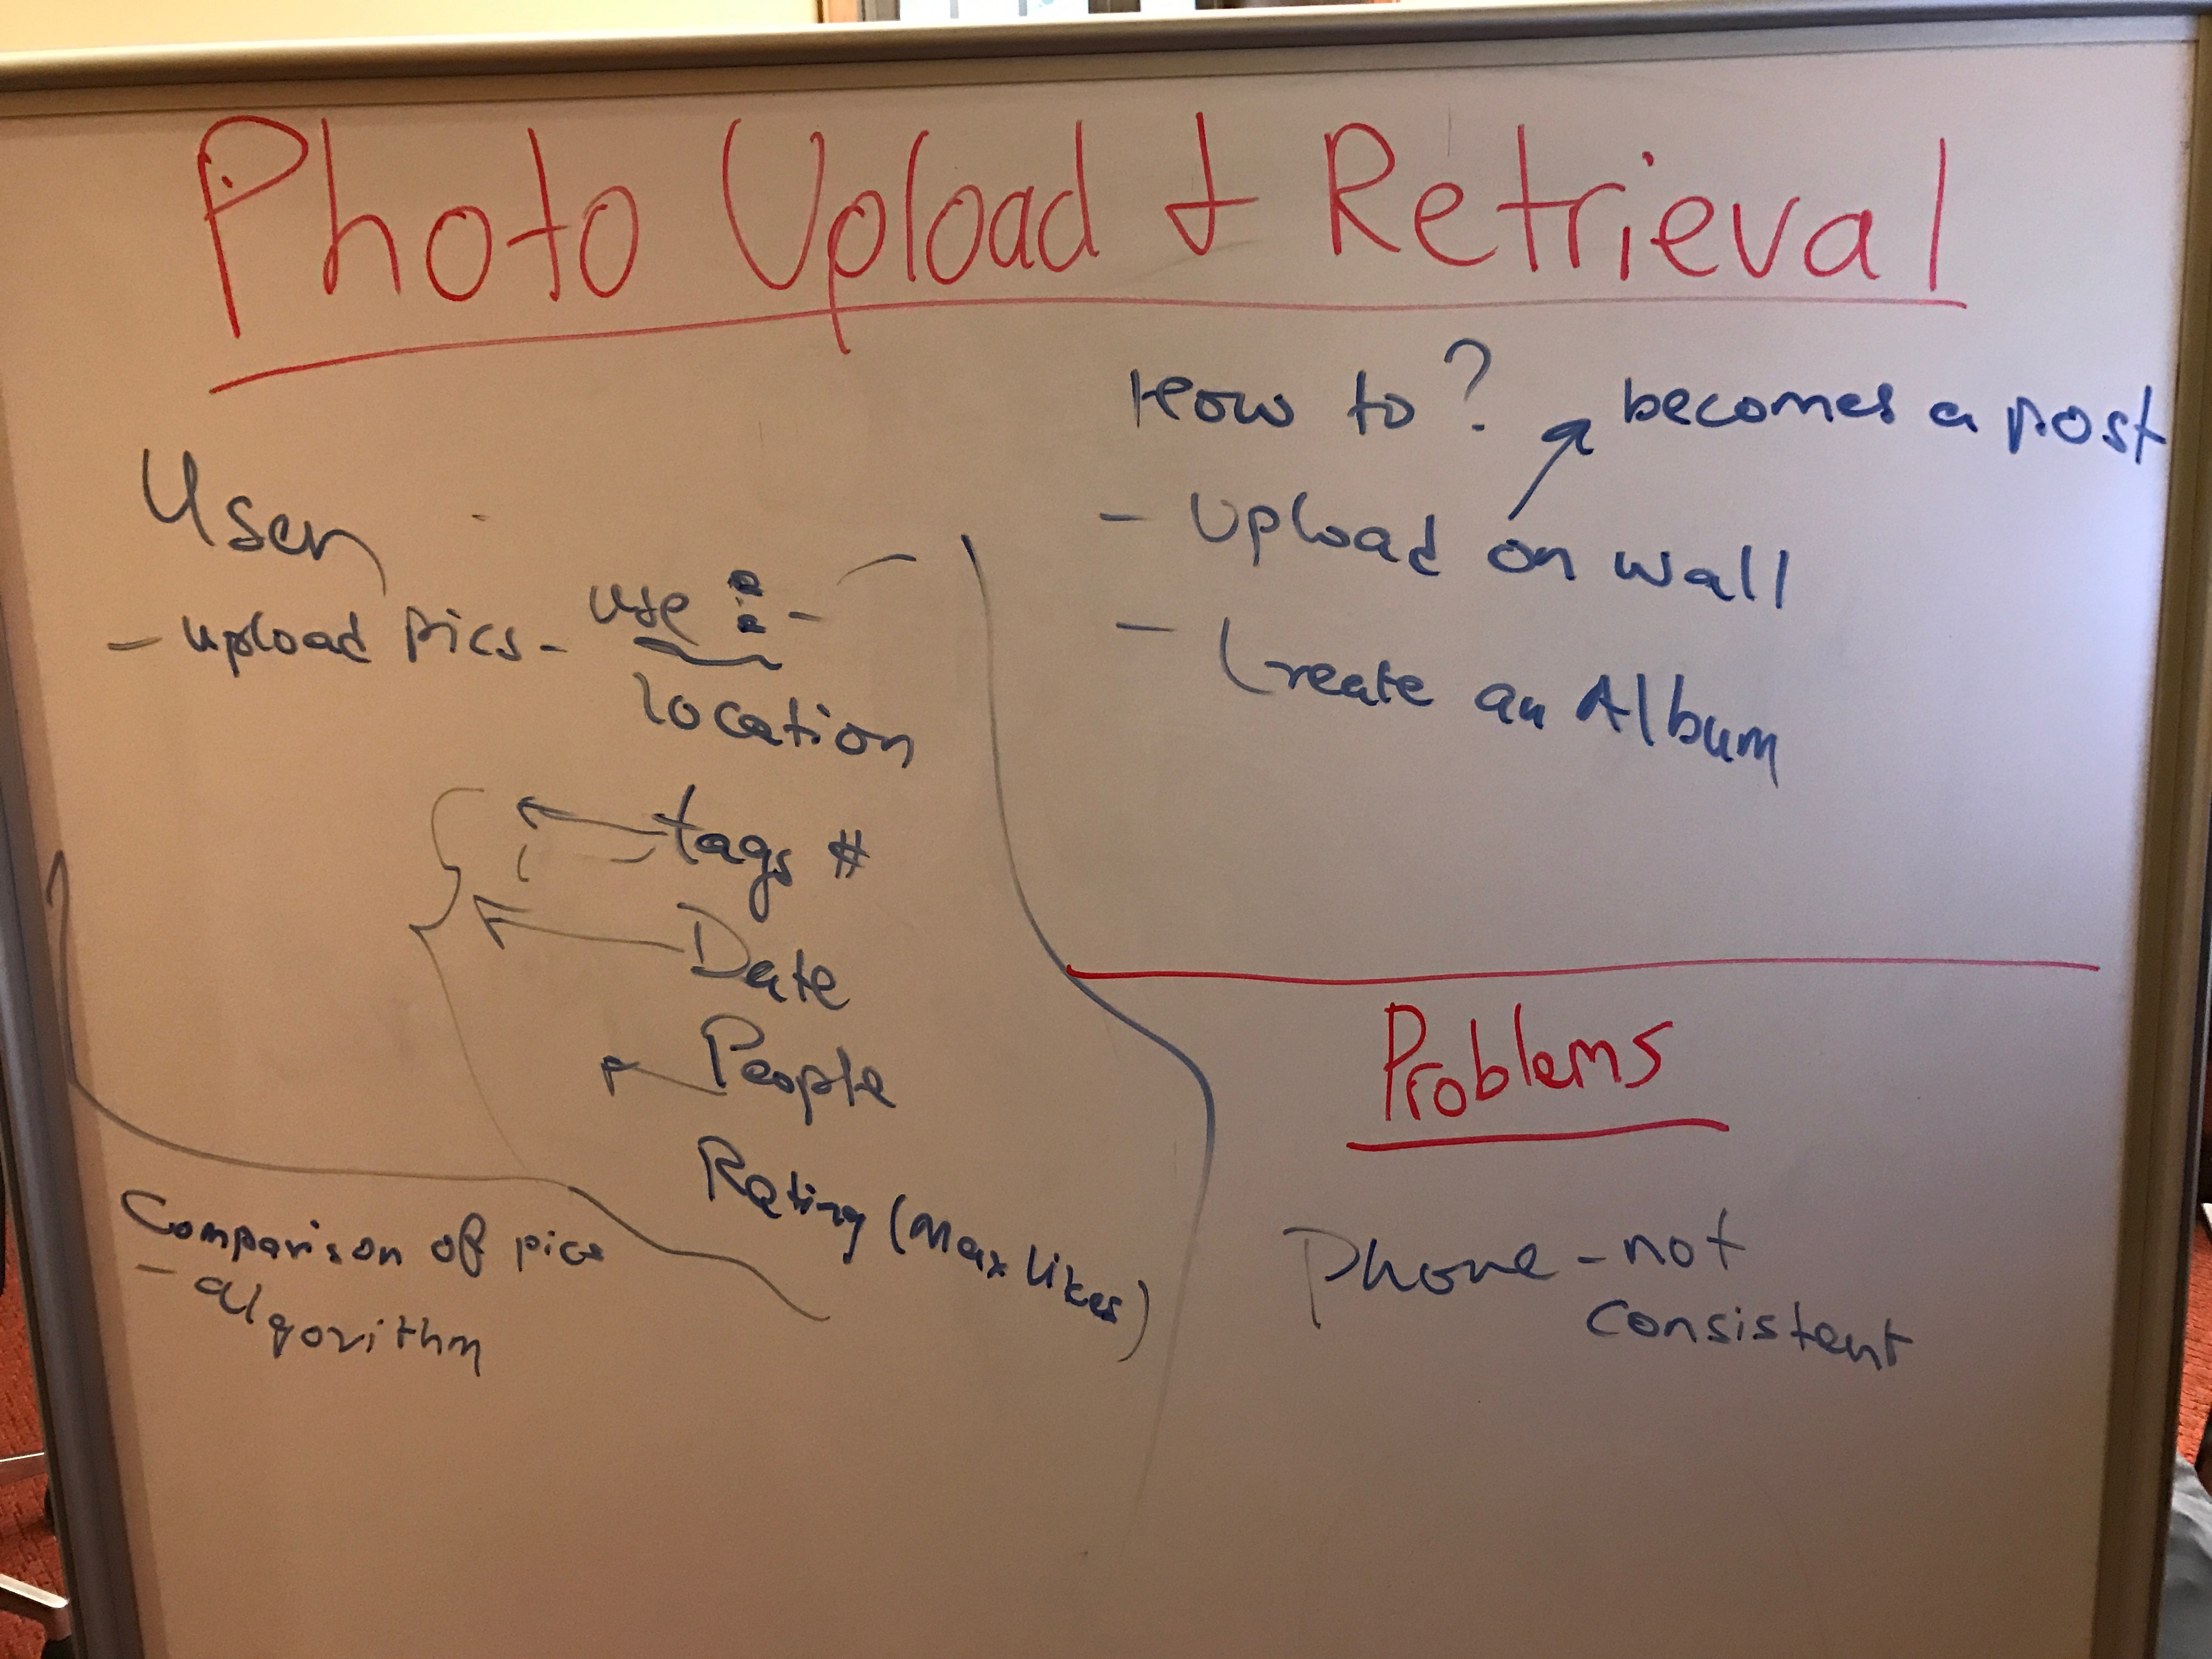 Photo Upload & Retrieval
User
- upload pics - use : -
location
tags #
Date
People
Rating (Max likes)
Comparison of pics
- algorithm
How to? becomes a post
- Upload on wall
- Create an Album
Problems
Phone - not
consistent